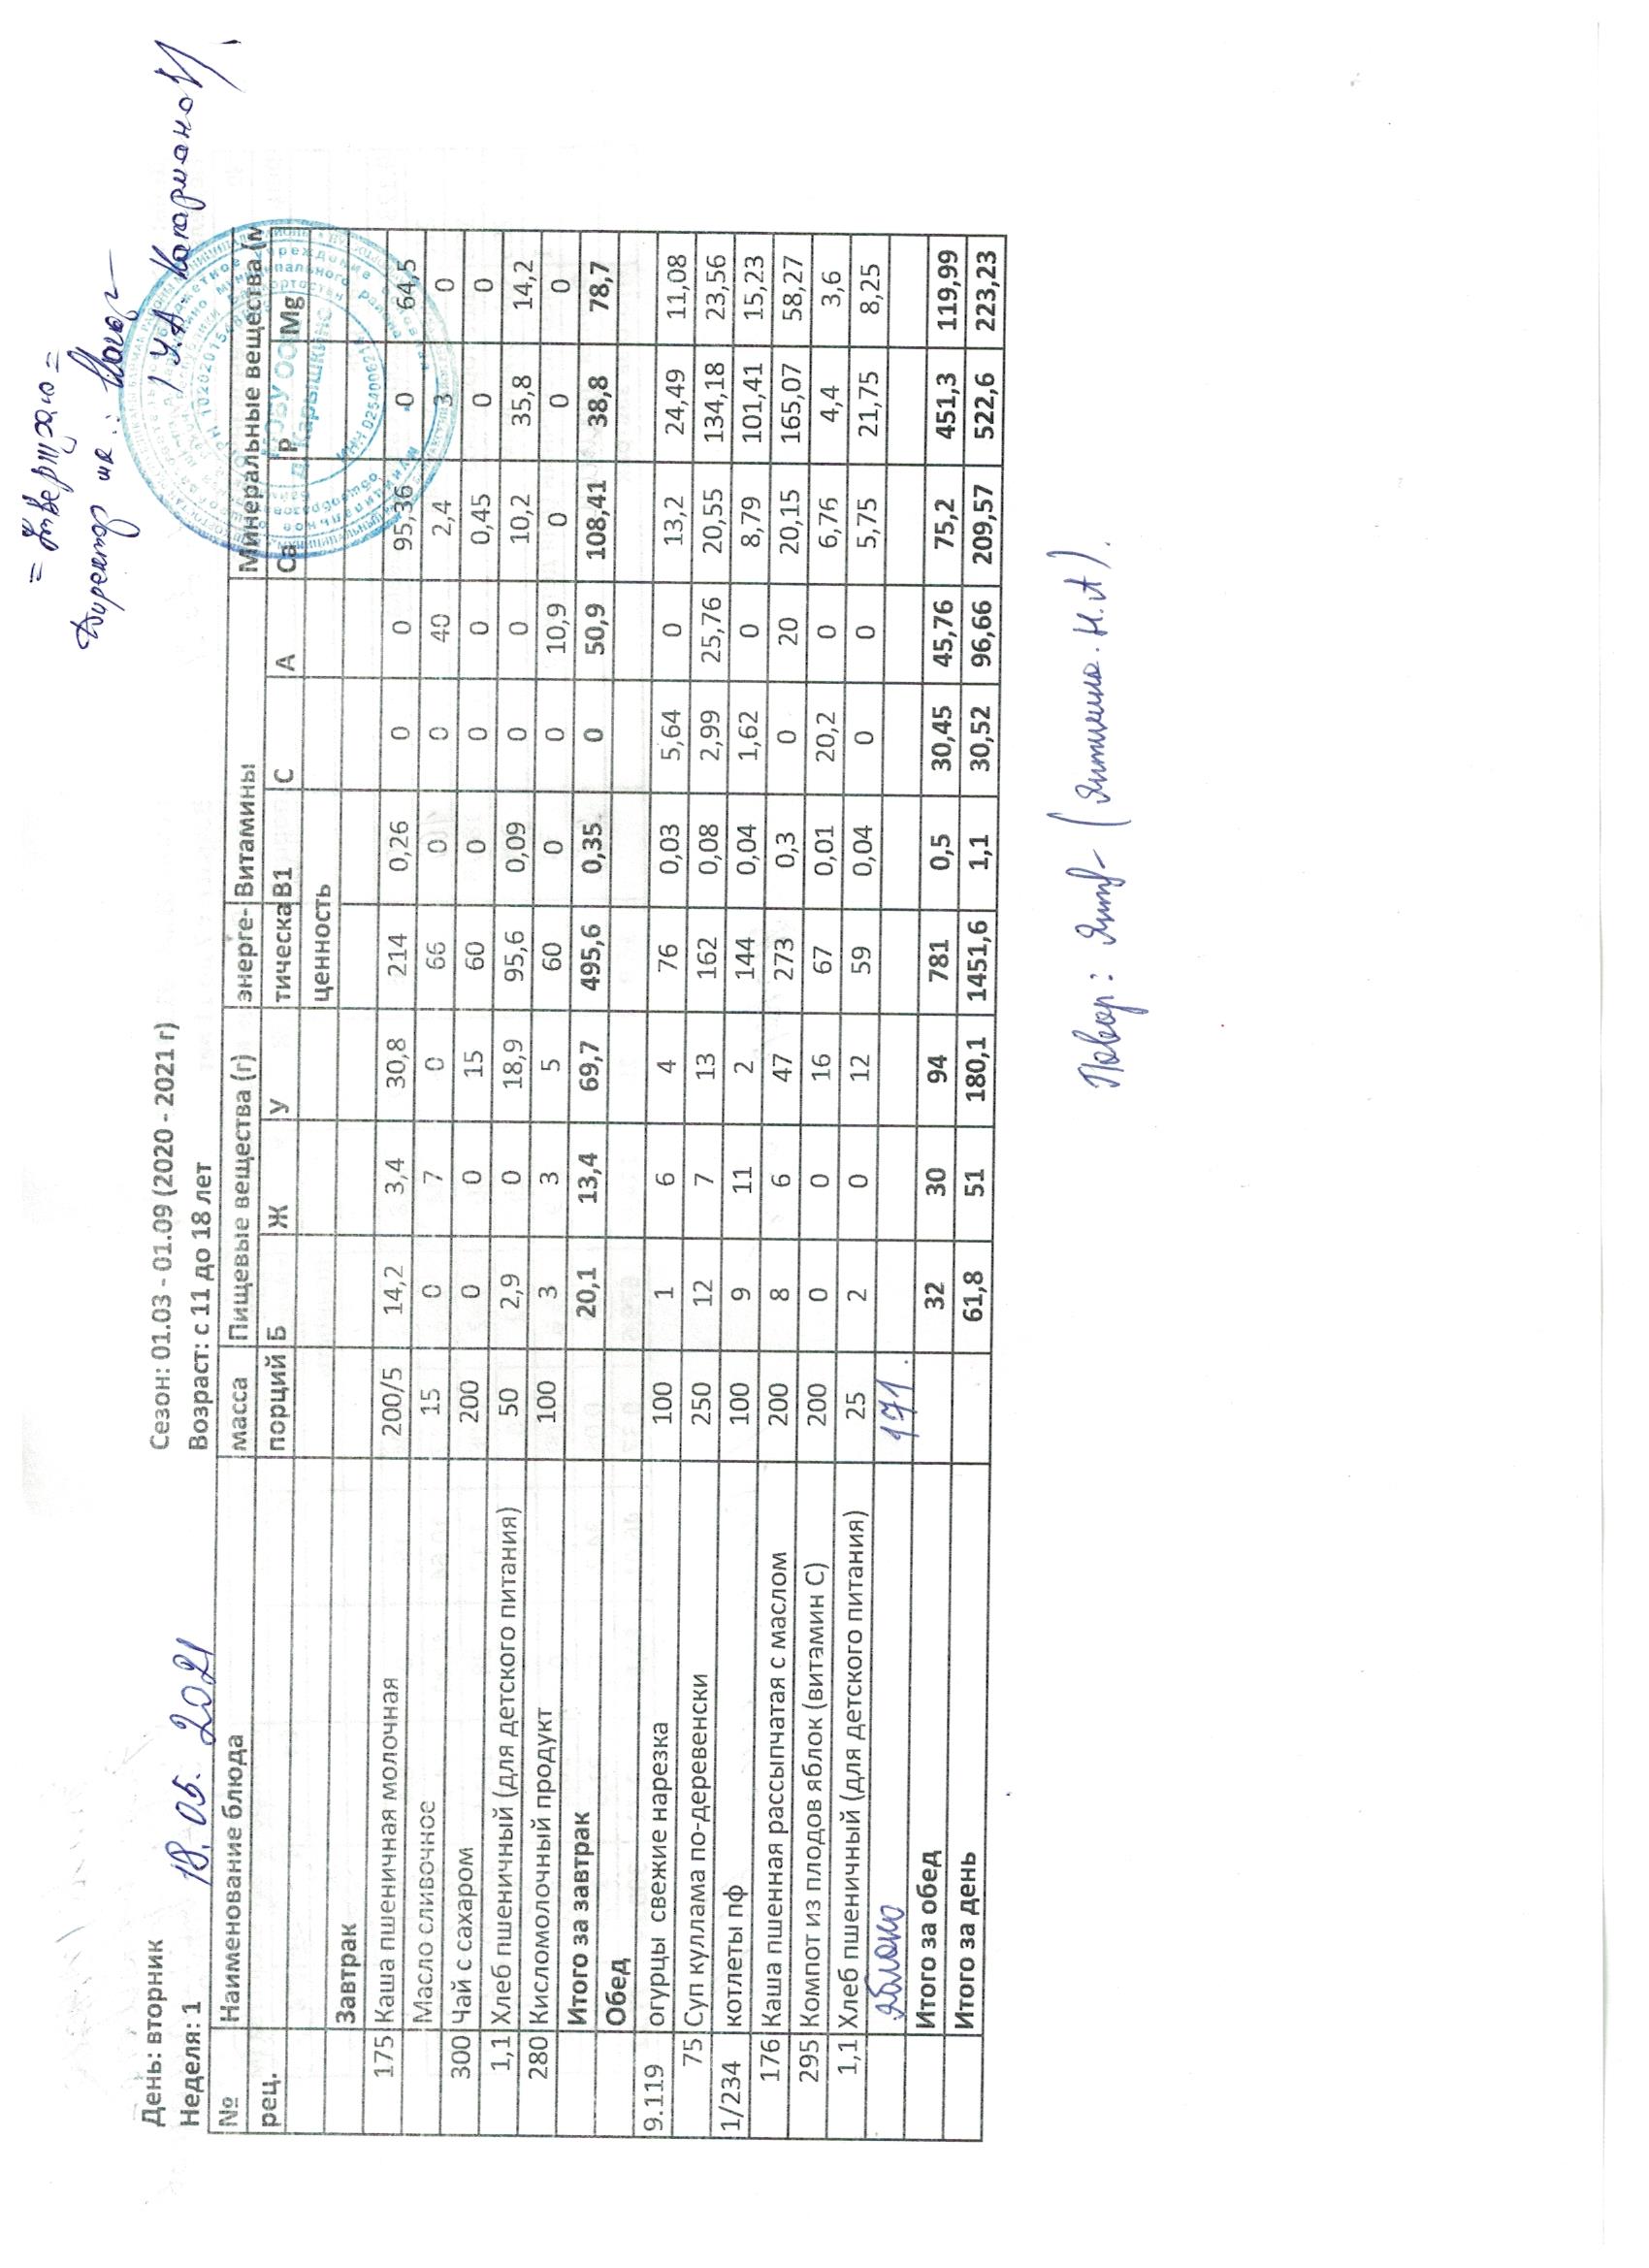 = Утверждаю =
Директор шк:
/ У.А. Кагарманов /
День: вторник Сезон: 01.03 - 01.09 (2020 - 2021 г)
Неделя: 1 18.05.2021 Возраст: с 11 до 18 лет
№ Наименование блюда масса Пищевые вещества (г) энерге- Витамины Минеральные вещества (м
рец. порций Б Ж У тическа В1 С А Са Р Mg
ценность
Завтрак
175 Каша пшеничная молочная 200/5 14,2 3,4 30,8 214 0,26 0 0 95,36 0 64,5
Масло сливочное 15 0 7 0 66 0 0 40 2,4 3 0
300 Чай с сахаром 200 0 0 15 60 0 0 0 0,45 0 0
1,1 Хлеб пшеничный (для детского питания) 50 2,9 0 18,9 95,6 0,09 0 0 10,2 35,8 14,2
280 Кисломолочный продукт 100 3 3 5 60 0 0 10,9 0 0 0
Итого за завтрак 20,1 13,4 69,7 495,6 0,35 0 50,9 108,41 38,8 78,7
Обед
9.119 огурцы свежие нарезка 100 1 6 4 76 0,03 5,64 0 13,2 24,49 11,08
75 Суп куллама по-деревенски 250 12 7 13 162 0,08 2,99 25,76 20,55 134,18 23,56
1/234 котлеты пф 100 9 11 2 144 0,04 1,62 0 8,79 101,41 15,23
176 Каша пшенная рассыпчатая с маслом 200 8 6 47 273 0,3 0 20 20,15 165,07 58,27
295 Компот из плодов яблок (витамин С) 200 0 0 16 67 0,01 20,2 0 6,76 4,4 3,6
1,1 Хлеб пшеничный (для детского питания) 25 2 0 12 59 0,04 0 0 5,75 21,75 8,25
яблоко 171
Итого за обед 32 30 94 781 0,5 30,45 45,76 75,2 451,3 119,99
Итого за день 61,8 51 180,1 1451,6 1,1 30,52 96,66 209,57 522,6 223,23
Повар: